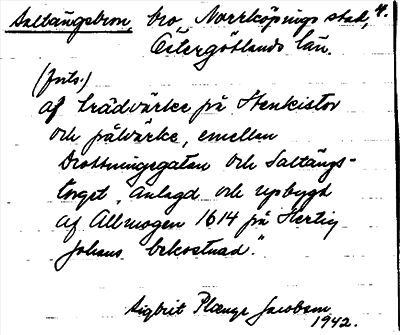 Saltängsbron, bro, Norrköpings stad, 4.
Östergötlands län.
(forts.)
af trädvärke på Stenkistor
och pålvärke, emellan
Drottninggatan och Saltängs-
torget, anlagd och upbygt
af Allmogen 1614 på Hertig
Johans bekostnad."
Sigbrit Plænge Jacobson
1942.